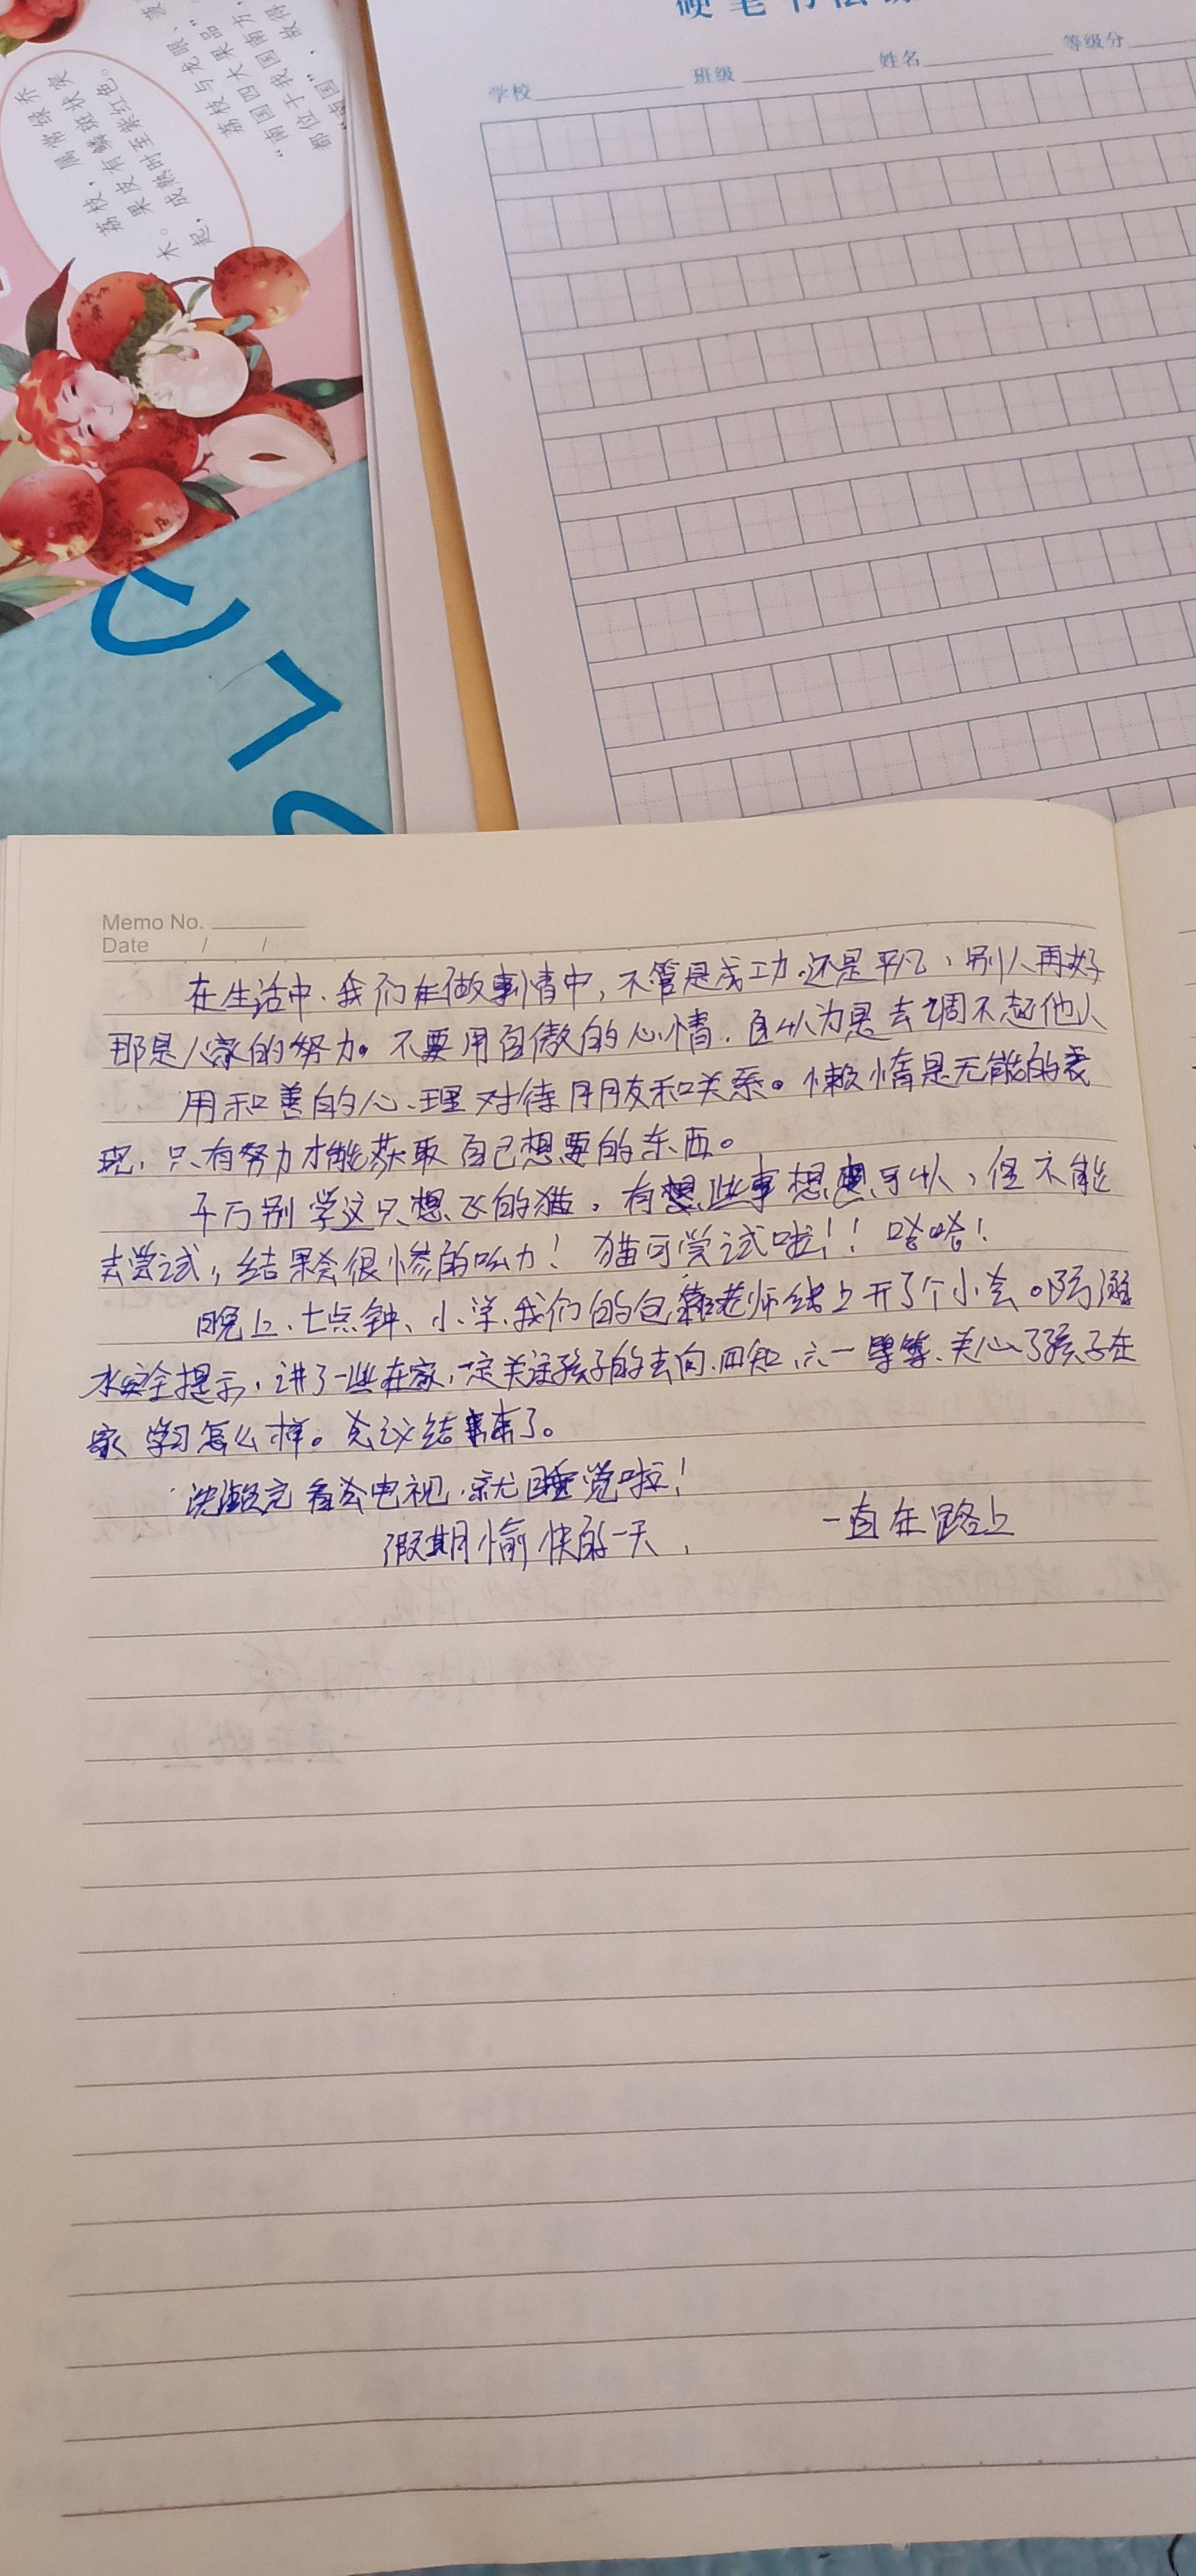 硬笔书法
学校 班级 姓名 等级分
荔枝，属常绿乔
木。果皮有鳞斑状突
起，成熟时至紫红色。
荔枝与龙眼、菠
"南国四大果品"。
都位于我国南方，
"南国"，故得
Memo No.
Date / /
在生活中、我们在做事情中，不管是成功、还是平凡、别人再好
那是人家的努力。不要用自傲的心情．自认为是去调不起他人
用和善的心、理对待朋友和关系。懒惰是无能的表
现，只有努力才能获取自己想要的东西。
千万别学这只想飞的猫。有想些事想想可以、但不能
去尝试，结果会很惨的呦！猫可尝试啦！！哈哈！
晚上、七点钟、小洋、我们的包靠老师线上开了个小会。防溺
水安全提示，讲了一些在家，一定关注孩子的去向、四知、六一 等、关心了孩子在
家学习怎么样。会议结束了。
洗漱完看会电视、就睡觉啦！
假期愉快的一天，
一直在路上